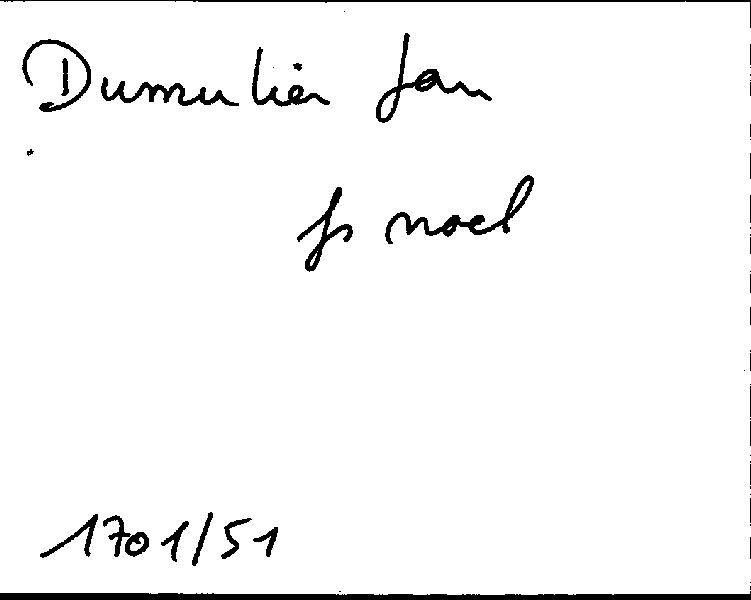 Dumulier Jan
fs noel
1701/51